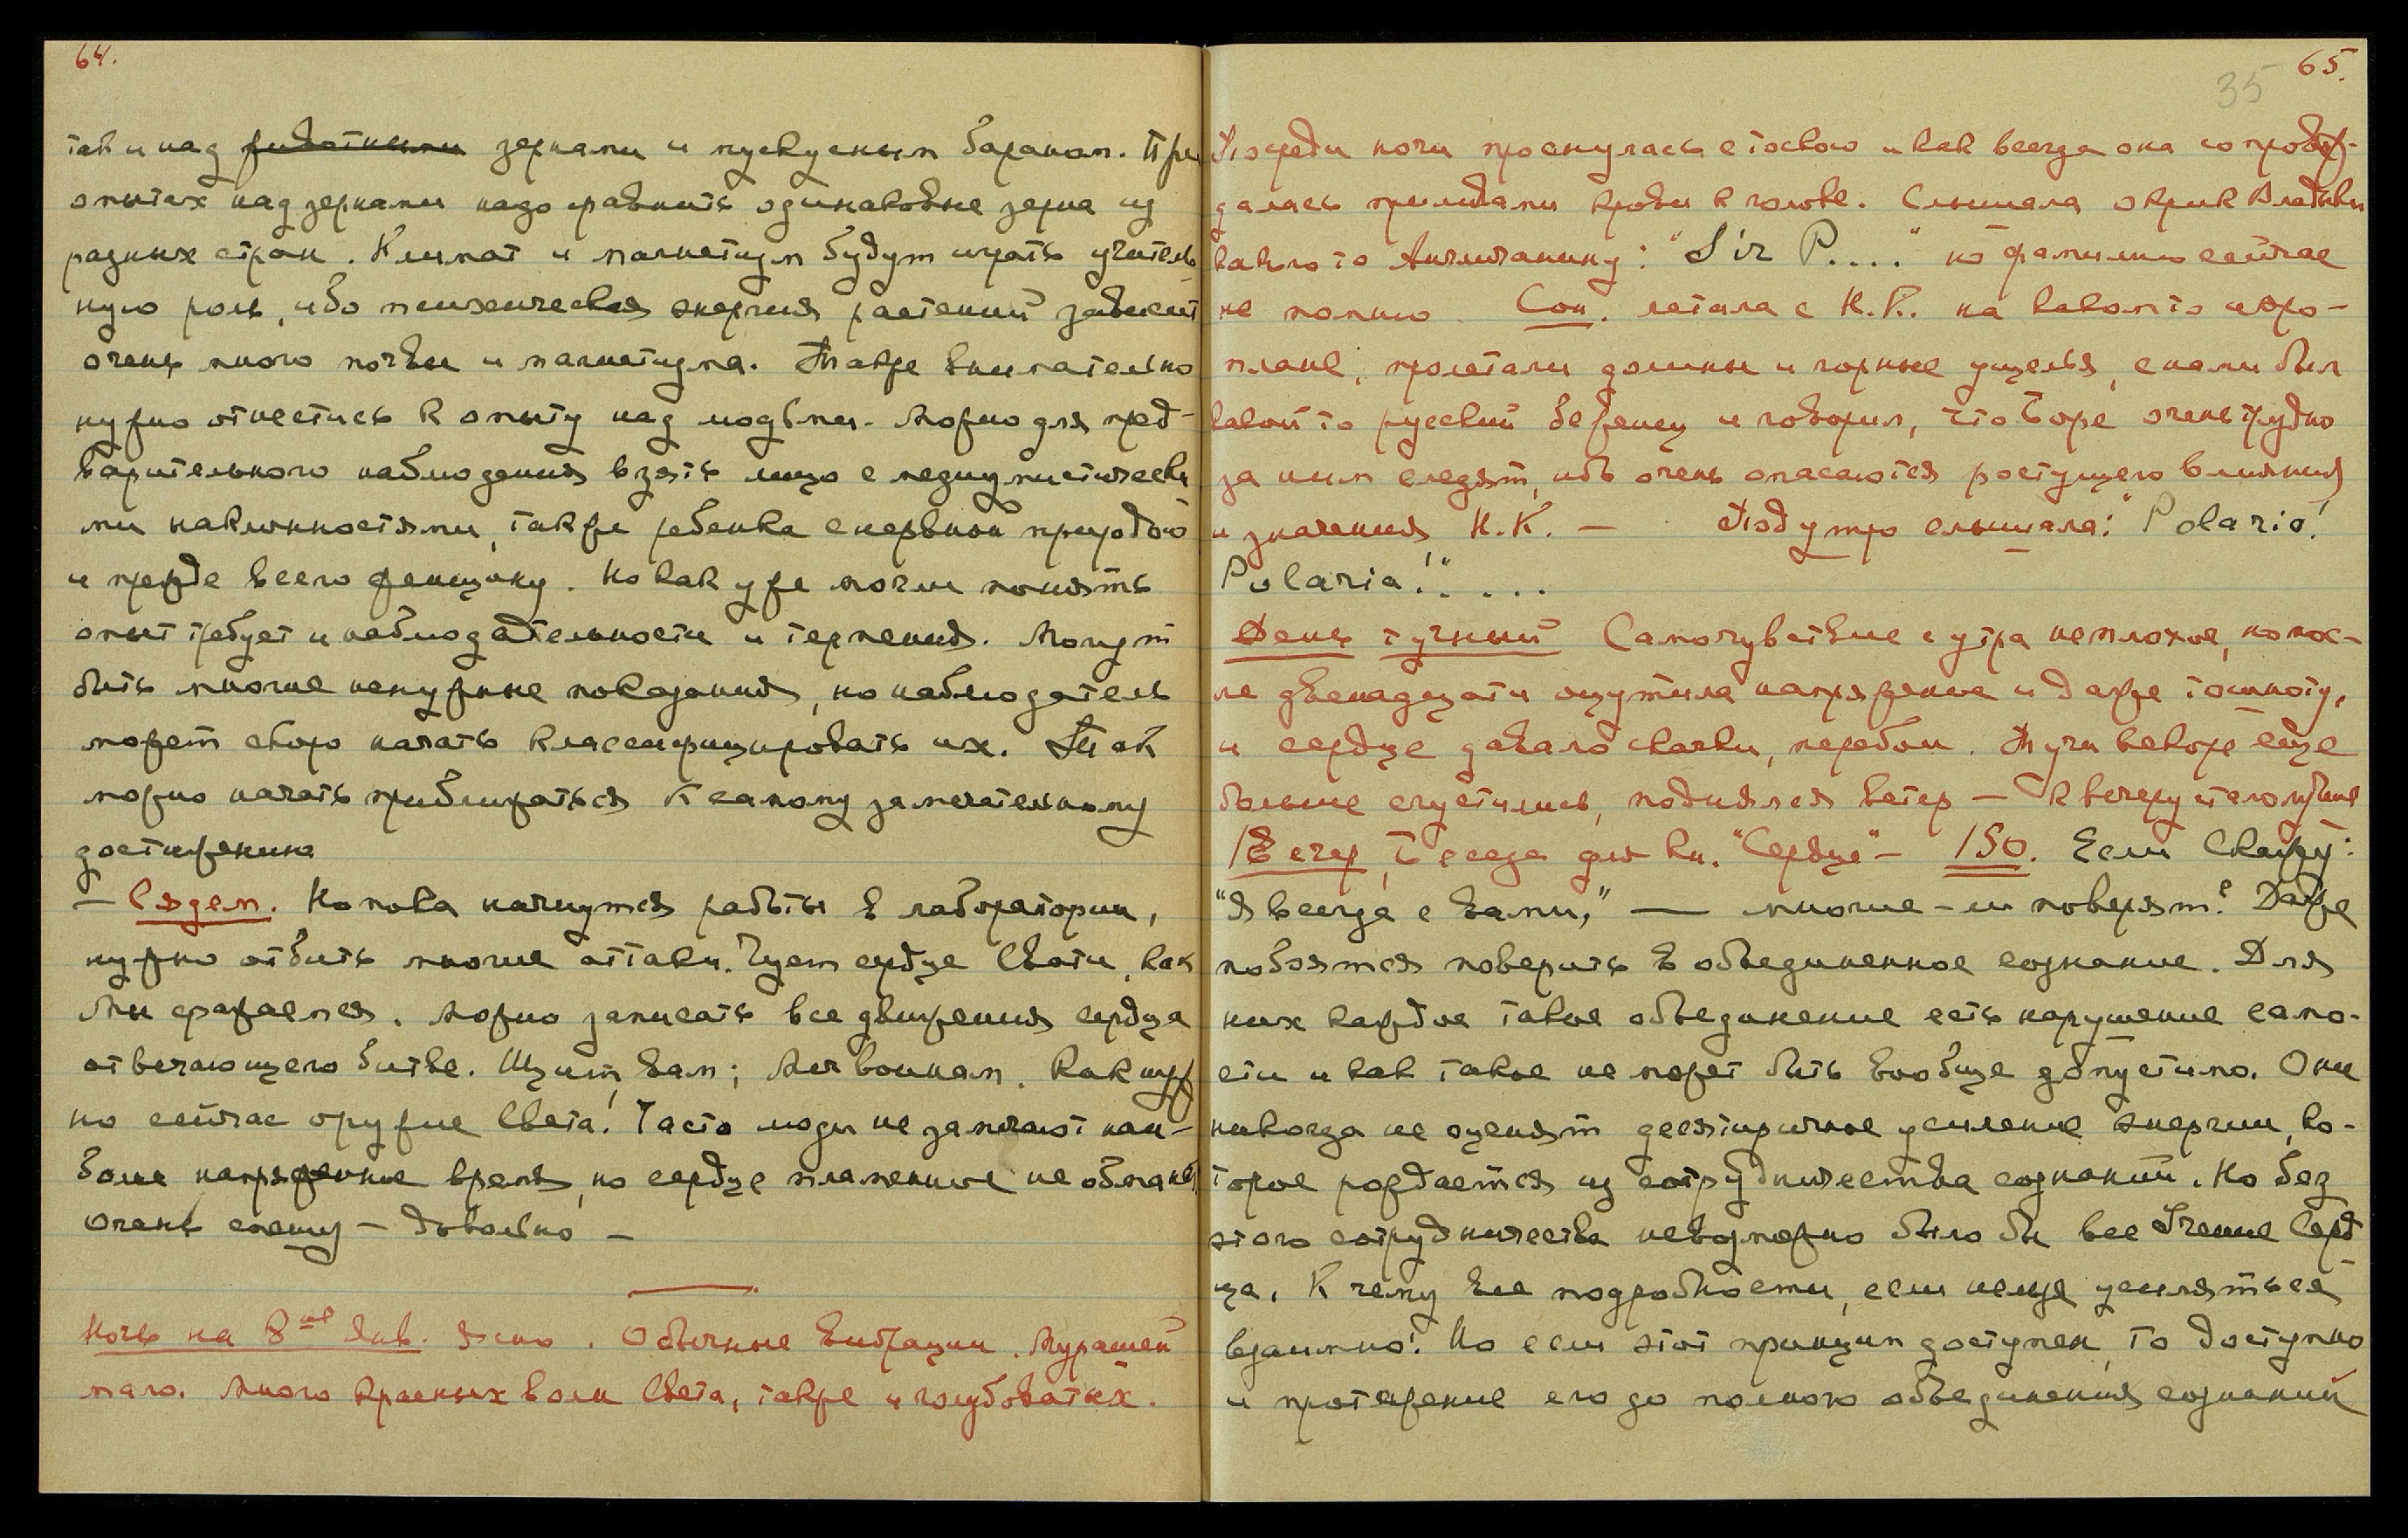 64.
так и над ~~животными~~ зернами и мускусным бараном. При
опытах над зернами надо сравнить одинаковые зерна из
разных стран. Климат и магнетизм будут играть
ную роль, ибо психическая энергия растений зависит
очень много почвы и магнетизма. Также внимательно
нужно отнестись к опыту над людьми. Можно для пред-
варительного наблюдения взять лицо с медиумистически
ми наклонностями, также ребенка с нервной природой
и прежде всего женщину. Но как уже могли понять
опыт требует и наблюдательности и терпения. Могут
быть многие ненужные показания, но наблюдатель
может скоро начать классифицировать их. Так
можно начать приближаться к самому замечательному
достижению
— Сядем. Но пока начнутся работы в лаборатории,
нужно отбить многие аттаки. Чует сердце Свати, как
Мы сражаемся. Можно записать все движения сердца
отвечающего битве. Щит вам; Меч воинам. Как нуж
но сейчас оружие Света! Часто люди не замечают наи-
более напряженное время, но сердце пламенное не обманет
Очень спешу — довольно —
Ночь на 8ое Янв. Ясно. Обычные вибрации. Мурашей
мало. Много красных волн Света, также и голубоватых.
65.
35
Посреди ночи проснулась с тоскою и как всегда она сопровож-
далась приливами крови к голове. Слышала окрик Владыки
какого то Англичанину: "Sir P...." но фамилию сейчас
не помню. Сон. летала с Н.К. на каком то аэро-
плане, пролетали долины и горные ущелья, с нами был
какой то русский беженец и говорил, что в горе очень трудно
за ним следят, ибо очень опасаются растущего влияния
и значения Н.К. — Под утро слышала: "Polaris!
Polaria!" . . . .
День тучный Самочувствие с утра неплохое, но пос-
ле двенадцати ощутила напряжение и даже тошноту,
и сердце давало скачки, перебои. Тучи вскоре еще
больше сгустились, поднялся ветер — К вечеру стало лучше
/Вечер, Беседа для кн. "Сердце" — 150. Если Скажу:
"Я всегда с вами," — многие-ли поверят? Даже
побоятся поверить в объединенное сознание. Для
них каждое такое объединение есть нарушение само-
сти и как такое не может быть вообще допустимо. Они
никогда не оценят десятиричное усиление энергии, ко-
торое рождается из сотрудничества сознаний. Но без
этого сотрудничества невозможно было бы все Учение Серд
ца. К чему все подробности, если нельзя усиляться
взаимно! Но если этот принцип доступен, то доступно
и протяжение его до полного объединения сознаний